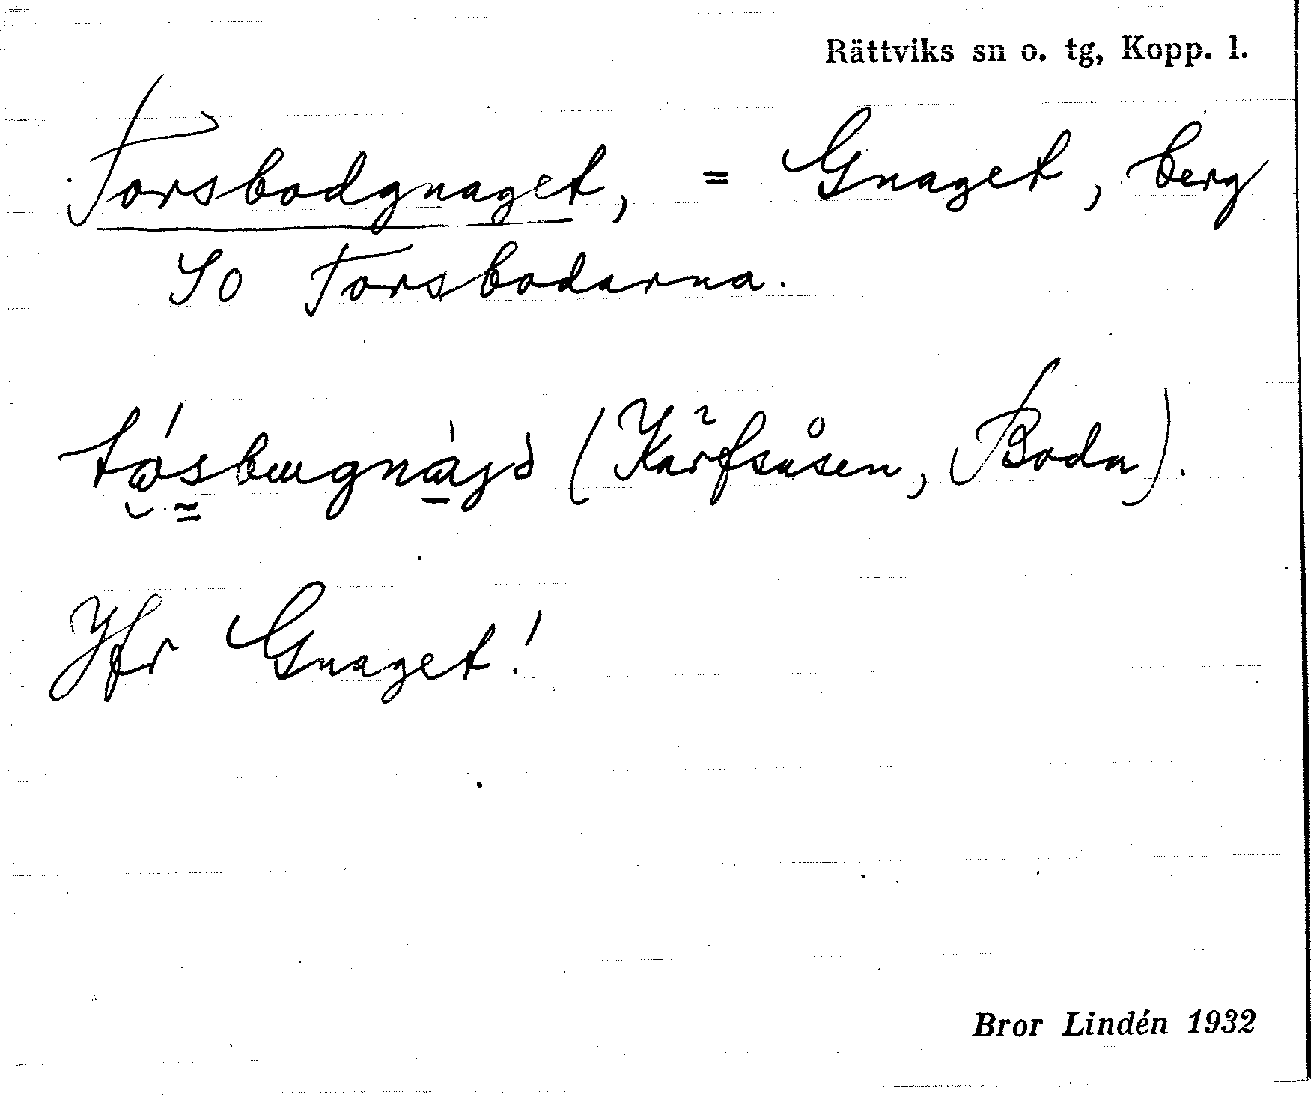 Rättviks sn o. tg, Kopp. l.
Torsbodgnaget, = Gnaget, berg
SO Torsbodarna.
(Kärfsåsen, Boda).
Jfr Gnaget!
Bror Lindén 1932